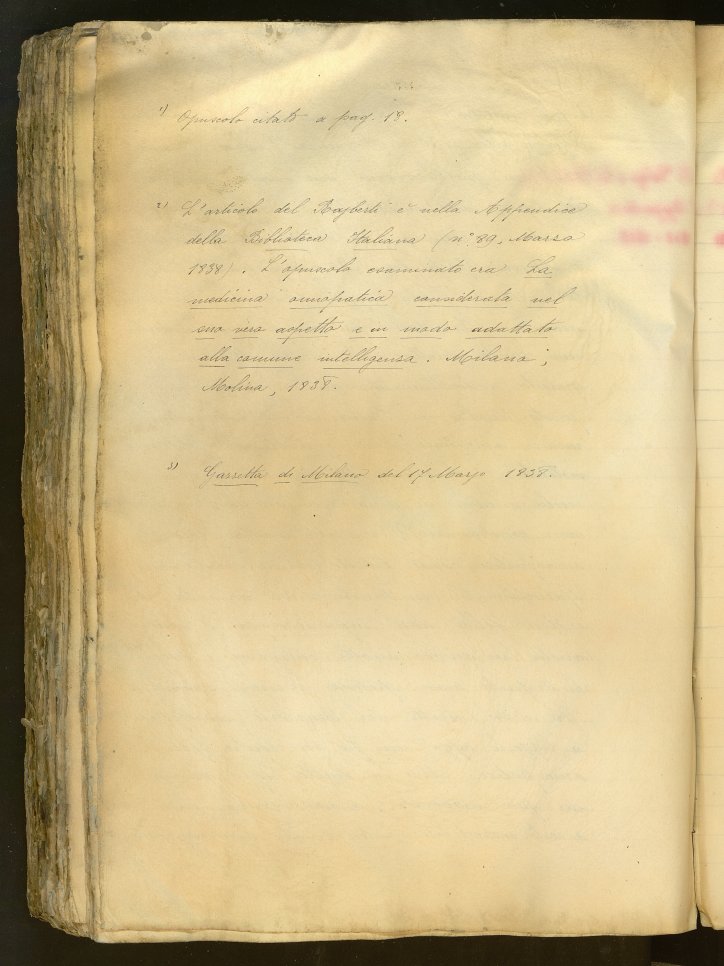 1) Opuscolo citato a pag. 18.
2) L'articolo del Rajberti è nella Appendice
della Biblioteca Italiana (n.° 89, Marzo
1838). L'opuscolo esaminato era La
medicina omiopatica considerata nel
suo vero aspetto e in modo adattato
alla comune intelligenza. Milano,
Molina, 1838.
3) Gazzetta di Milano del 17 Marzo 1838.